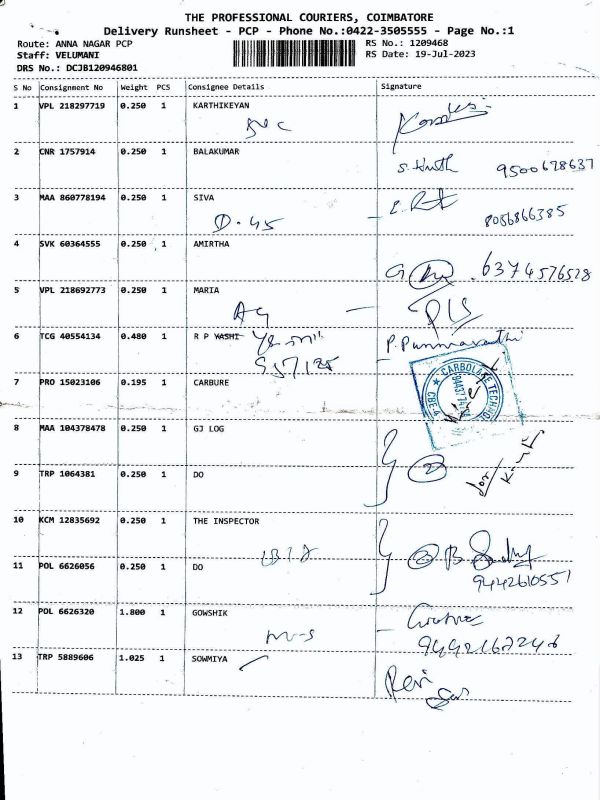 THE PROFESSIONAL COURIERS, COIMBATORE
Delivery Runsheet - PCP - Phone No.:0422-3505555 - Page No.:1
Route: ANNA NAGAR PCP RS No.: 1209468
Staff: VELUMANI RS Date: 19-Jul-2023
DRS No.: DCJB120946801
S No Consignment No Weight PCS Consignee Details Signature
1 VPL 218297719 0.250 1 KARTHIKEYAN
2 CNR 1757914 0.250 1 BALAKUMAR
9500678637
3 MAA 860778194 0.250 1 SIVA
D-45 8056866385
4 SVK 60364555 0.250 1 AMIRTHA
6374576528
5 VPL 218692773 0.250 1 MARIA
AG
6 TCG 40554134 0.480 1 R P YASHI
957125
7 PRO 15023106 0.195 1 CARBURE
8 MAA 104378478 0.250 1 GJ LOG
9 TRP 1064381 0.250 1 DO
2
10 KCM 12835692 0.250 1 THE INSPECTOR
2
11 POL 6626056 0.250 1 DO
9442610551
12 POL 6626320 1.800 1 GOWSHIK
M-S
13 TRP 5889606 1.025 1 SOWMIYA